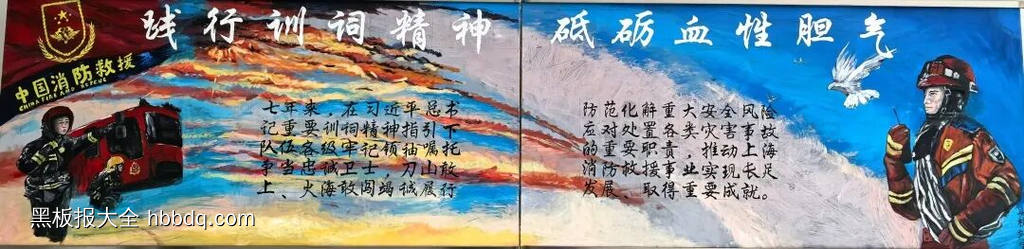 践行训词精神 砥砺血性胆气
中国消防救援
CHINA FIRE AND RESCUE
七年来，在习近平总书
记重要训词精神指引下
队伍各级牢记领袖嘱托
争当忠诚卫士，刀山敢
上、火海敢闯竭诚履行
防范化解重大安全风险
应对处置各类灾害事故
的重要职责，推动上海
消防救援事业实现长足
发展、取得重要成就。
黑板报大全 hbbdq.com